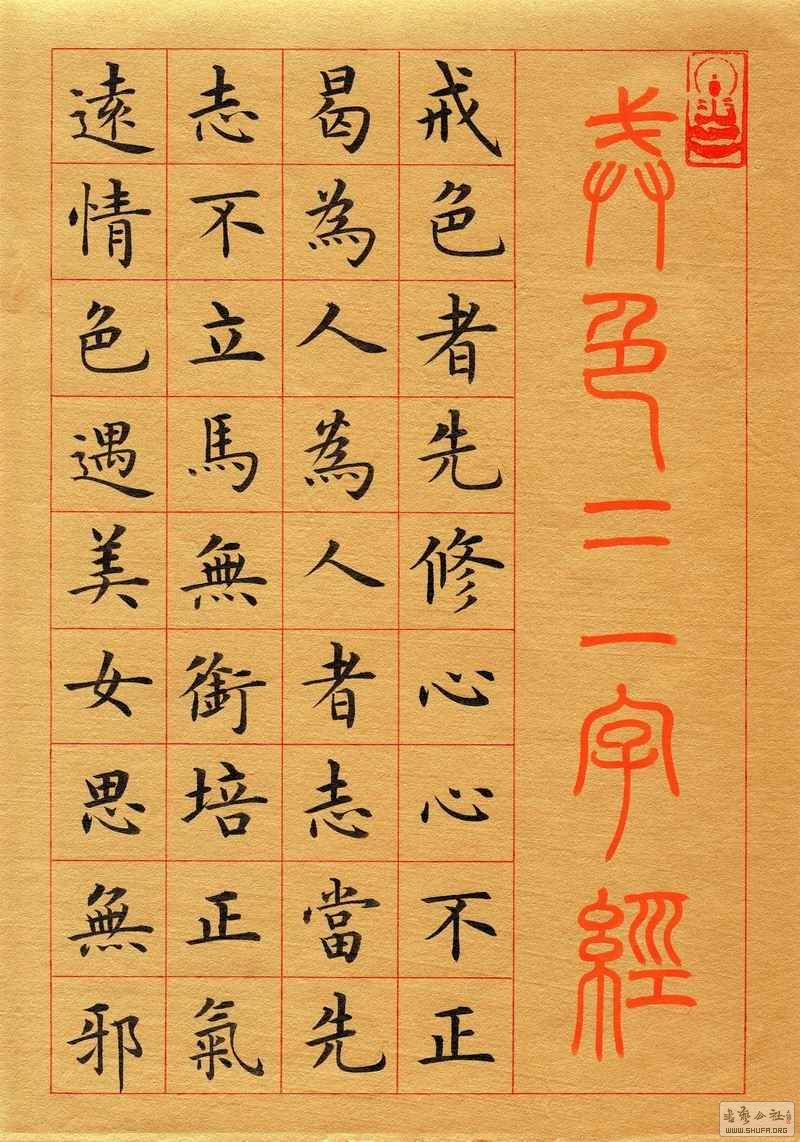 戒色三字經
戒色者先修心心不正
曷為人為人者志當先
志不立馬無銜培正氣
遠情色遇美女思無邪
书艺公社
WWW.SHUFA.ORG